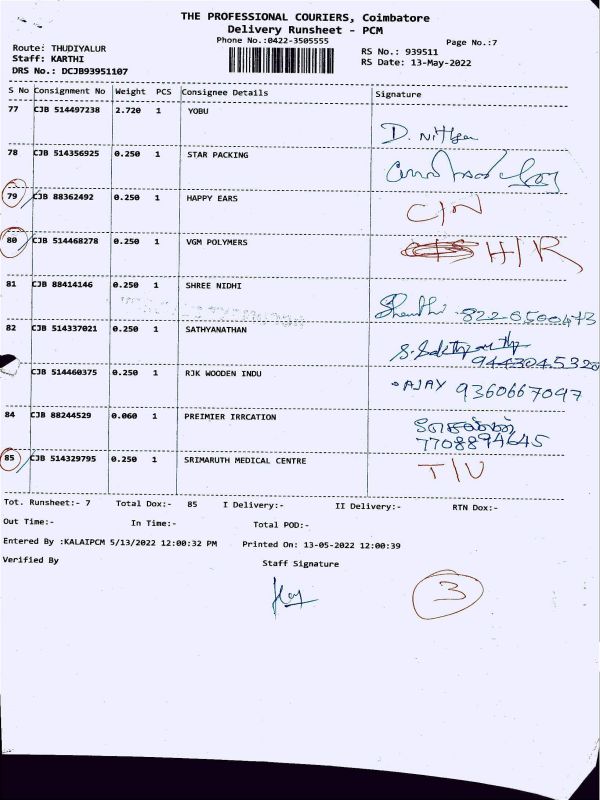 THE PROFESSIONAL COURIERS, Coimbatore
Delivery Runsheet - PCM
Phone No.:0422-3505555
Page No.:7
Route: THUDIYALUR
RS No.: 939511
Staff: KARTHI
RS Date: 13-May-2022
DRS No.: DCJB93951107
S No Consignment No Weight PCS Consignee Details Signature
77 CJB 514497238 2.720 1 YOBU
D. Nithya
78 CJB 514356925 0.250 1 STAR PACKING
79 CJB 88362492 0.250 1 HAPPY EARS C/N
80 CJB 514468278 0.250 1 VGM POLYMERS H/R
81 CJB 88414146 0.250 1 SHREE NIDHI
Shanthi 822-0500473
82 CJB 514337021 0.250 1 SATHYANATHAN
9443045320
CJB 514460375 0.250 1 RJK WOODEN INDU AJAY 9360667097
84 CJB 88244529 0.060 1 PREIMIER IRRCATION
7708894645
85 CJB 514329795 0.250 1 SRIMARUTH MEDICAL CENTRE T/U
Tot. Runsheet:- 7 Total Dox:- 85 I Delivery:- II Delivery:- RTN Dox:-
Out Time:- In Time:- Total POD:-
Entered By :KALAIPCM 5/13/2022 12:00:32 PM Printed On: 13-05-2022 12:00:39
Verified By Staff Signature
3